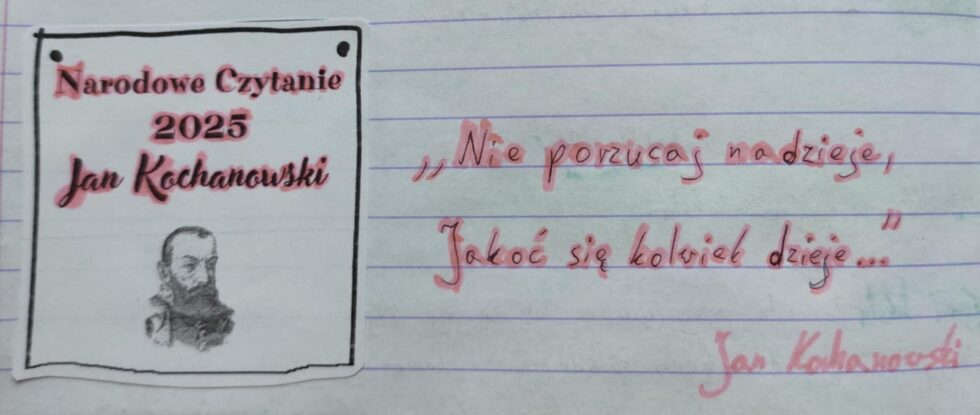 Narodowe Czytanie
2025
Jan Kochanowski
„Nie porzucaj nadzieje,
Jakoć się kolwiek dzieje..."
Jan Kochanowski